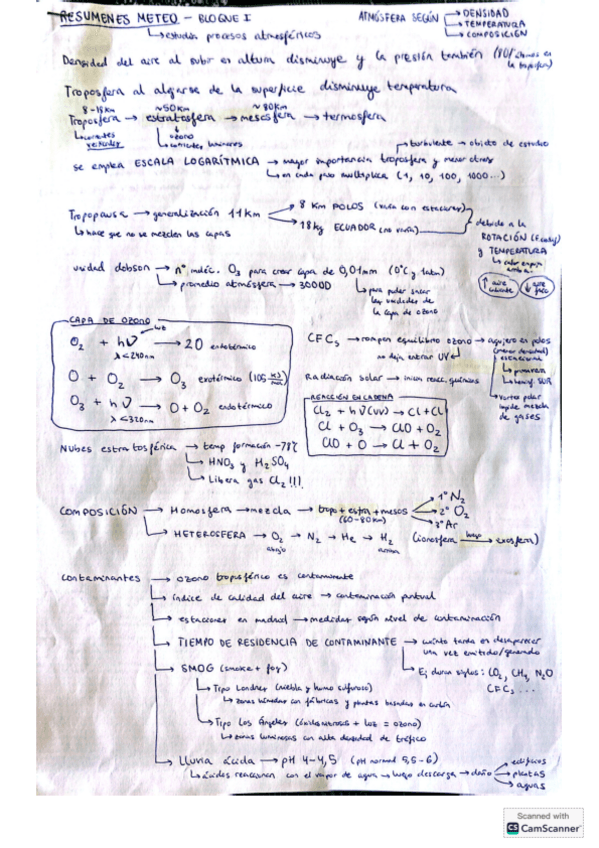 RESUMENES METEO – BLOQUE I
↳ estudia procesos atmosféricos
ATMÓSFERA SEGÚN → DENSIDAD
→ TEMPERATURA
→ COMPOSICIÓN
Densidad del aire al subir en altura disminuye y la presión también
Troposfera al alejarse de la superficie disminuye temperatura
8-18km ~50km ~80km
Troposfera → estratosfera → mesosfera → termosfera
↳ corrientes verticales
↓ ozono
↳ corrientes
→ turbulenta → objeto de estudio
se emplea ESCALA LOGARÍTMICA → mayor importancia troposfera y menor otras
↳ en cada paso multiplica (1, 10, 100, 1000...)
Tropopausa → generalización 11km
→ 8 km POLOS (varía con estaciones)
→ 18kg ECUADOR (no varía)
↳ hace que no se mezclen las capas
debido a la ROTACIÓN
y TEMPERATURA
↑ aire caliente ↓ aire frío
unidad dobson → nº moléc. O3 para crear capa de 0,01mm (0ºC y 1atm)
↳ promedio atmósfera → 300UD
↳ para poder sacar las unidades de la capa de ozono
CAPA DE OZONO
O2 + hν → 2O endotérmico
λ<240nm
O + O2 → O3 exotérmico
O3 + hν → O + O2 endotérmico
λ<320nm
CFCs → rompen equilibrio ozono → agujero en polos
no deja entrar UV
↳ primavera
↳ hemisf. SUR
↳ vortex polar impide mezcla de gases
Radiación solar → inician reacc. químicas
REACCIÓN EN CADENA
Cl2 + hν(UV) → Cl + Cl
Cl + O3 → ClO + O2
ClO + O → Cl + O2
Nubes estratosférica → temp formación -78ºC
↳ HNO3 y H2SO4
↳ Libera gas Cl2 !!!
COMPOSICIÓN → Homosfera → mezcla → tropo + estra + mesos
(60-80km)
1º N2
2º O2
3º Ar
↳ HETEROSFERA → O2 → N2 → He → H2 (ionosfera luego → exosfera)
abajo arriba
Contaminantes → ozono troposférico es contaminante
→ índice de calidad del aire → contaminación puntual
→ estaciones en madrid → medidas según nivel de contaminación
→ TIEMPO DE RESIDENCIA DE CONTAMINANTE → cuánto tarda en desaparecer una vez emitido/generado
↳ Ej duran siglos: CO2, CH4, N2O
CFCs ...
→ SMOG (smoke + fog)
↳ Tipo Londres (niebla y humo sulfuroso)
↳ zonas húmedas con fábricas y plantas basadas en carbón
↳ Tipo Los Ángeles (óxidos nitrosos + luz = ozono)
↳ zonas luminosas con alta densidad de tráfico
→ Lluvia ácida → pH 4-4,5 (pH normal 5,5-6)
↳ ácidos reaccionan con el vapor de agua → luego descarga → daño → edificios
→ plantas
→ aguas
Scanned with
CS CamScanner